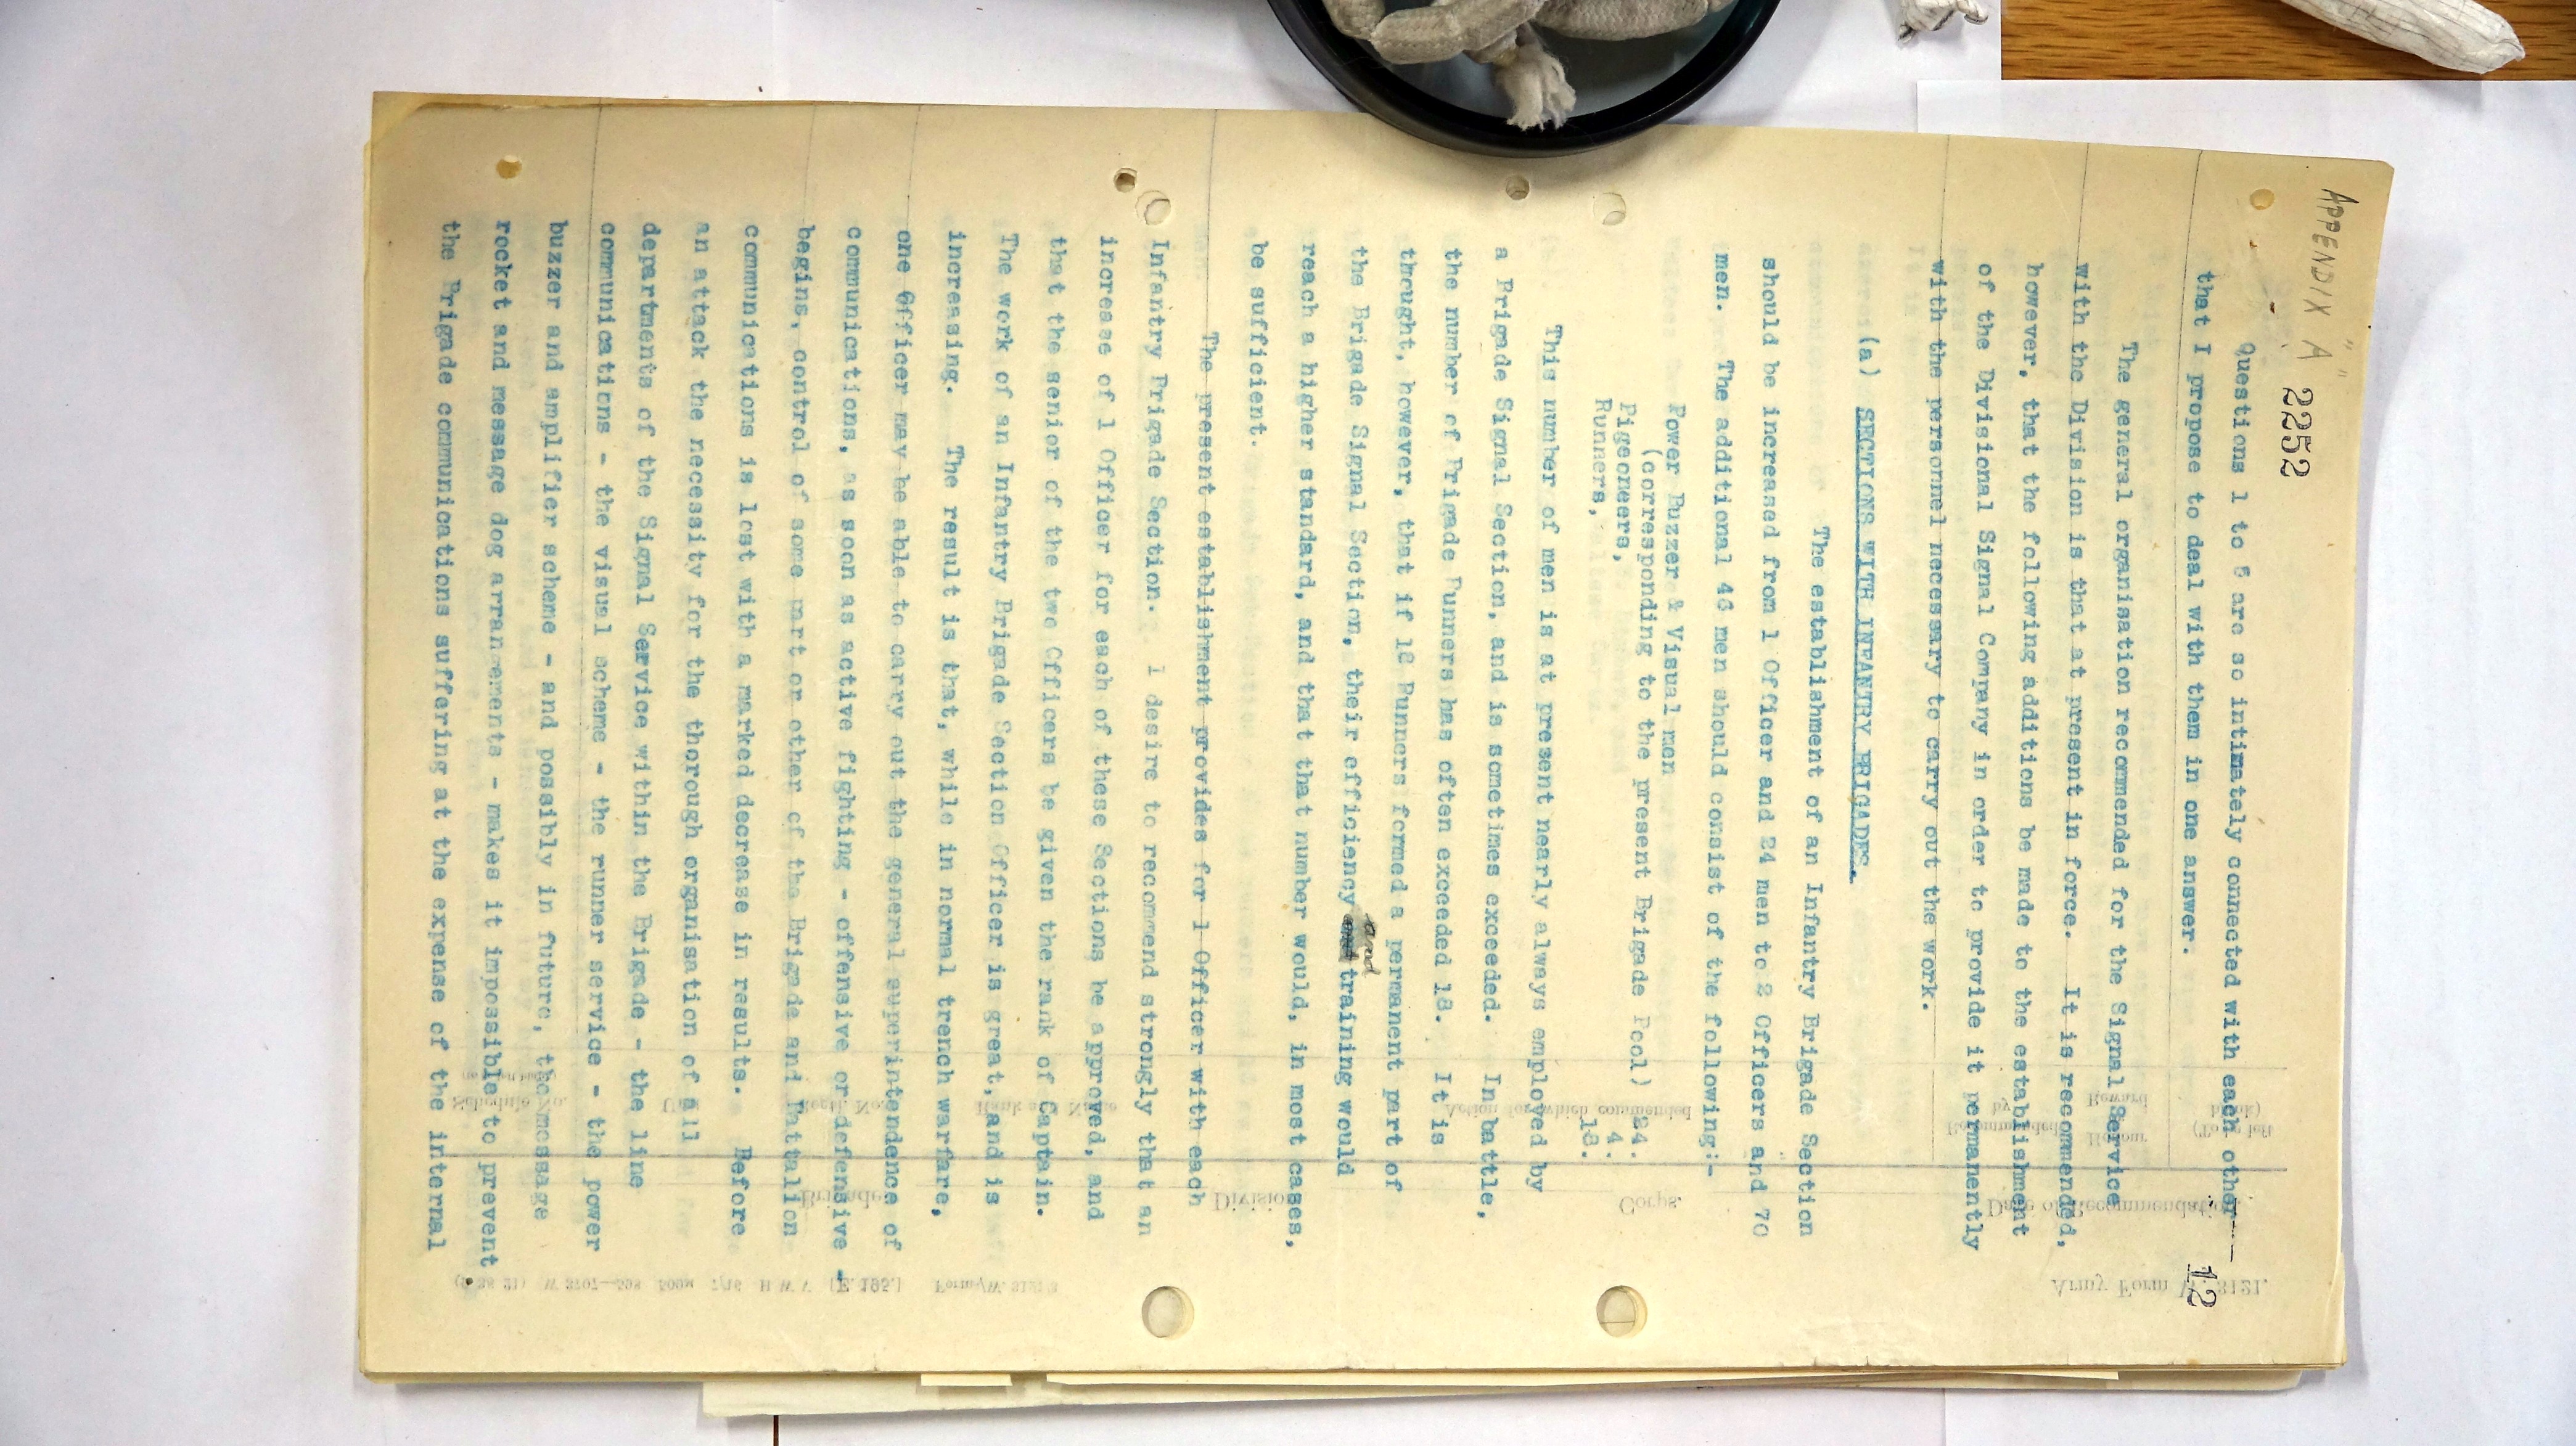 APPENDIX "A"
2252
Questions 1 to 5 are so intimately connected with each other
that I propose to deal with them in one answer.
12
The general organisation recommended for the Signal Service
with the Division is that at present in force. It is recommended,
however, that the following additions be made to the establishment
of the Divisional Signal Company in order to provide it permanently
with the personnel necessary to carry out the work.
(a) SECTIONS WITH INFANTRY BRIGADES.
The establishment of an Infantry Brigade Section
should be increased from 1 Officer and 24 men to 2 Officers and 70
men. The additional 46 men should consist of the following:-
Power Buzzer & Visual men
(corresponding to the present Brigade Pool) 24.
Pigeoneers, 4.
Runners, 18.
This number of men is at present nearly always employed by
a Brigade Signal Section, and is sometimes exceeded. In battle,
the number of Brigade Runners has often exceeded 18. It is
thought, however, that if 18 Runners formed a permanent part of
the Brigade Signal Section, their efficiency and training would
reach a higher standard, and that that number would, in most cases,
be sufficient.
The present establishment provides for 1 Officer with each
Infantry Brigade Section. I desire to recommend strongly that an
increase of 1 Officer for each of these Sections be approved, and
that the senior of the two Officers be given the rank of Captain.
The work of an Infantry Brigade Section Officer is great, and is
increasing. The result is that, while in normal trench warfare,
one Officer may be able to carry out the general superintendence of
communications, as soon as active fighting - offensive or defensive -
begins, control of some part or other of the Brigade and Battalion
communications is lost with a marked decrease in results. Before
an attack the necessity for the thorough organisation of all
departments of the Signal Service within the Brigade - the line
communications - the visusl scheme - the runner service - the power
buzzer and amplifier scheme - and possibly in future, the message
rocket and message dog arrangements - makes it impossible to prevent
the Brigade communications suffering at the expense of the internal
Army Form W. 3121.
Date of Recommendation
Corps.
Division
Brigade
Action for which commended
Recommended by
Reward
Schedule No.